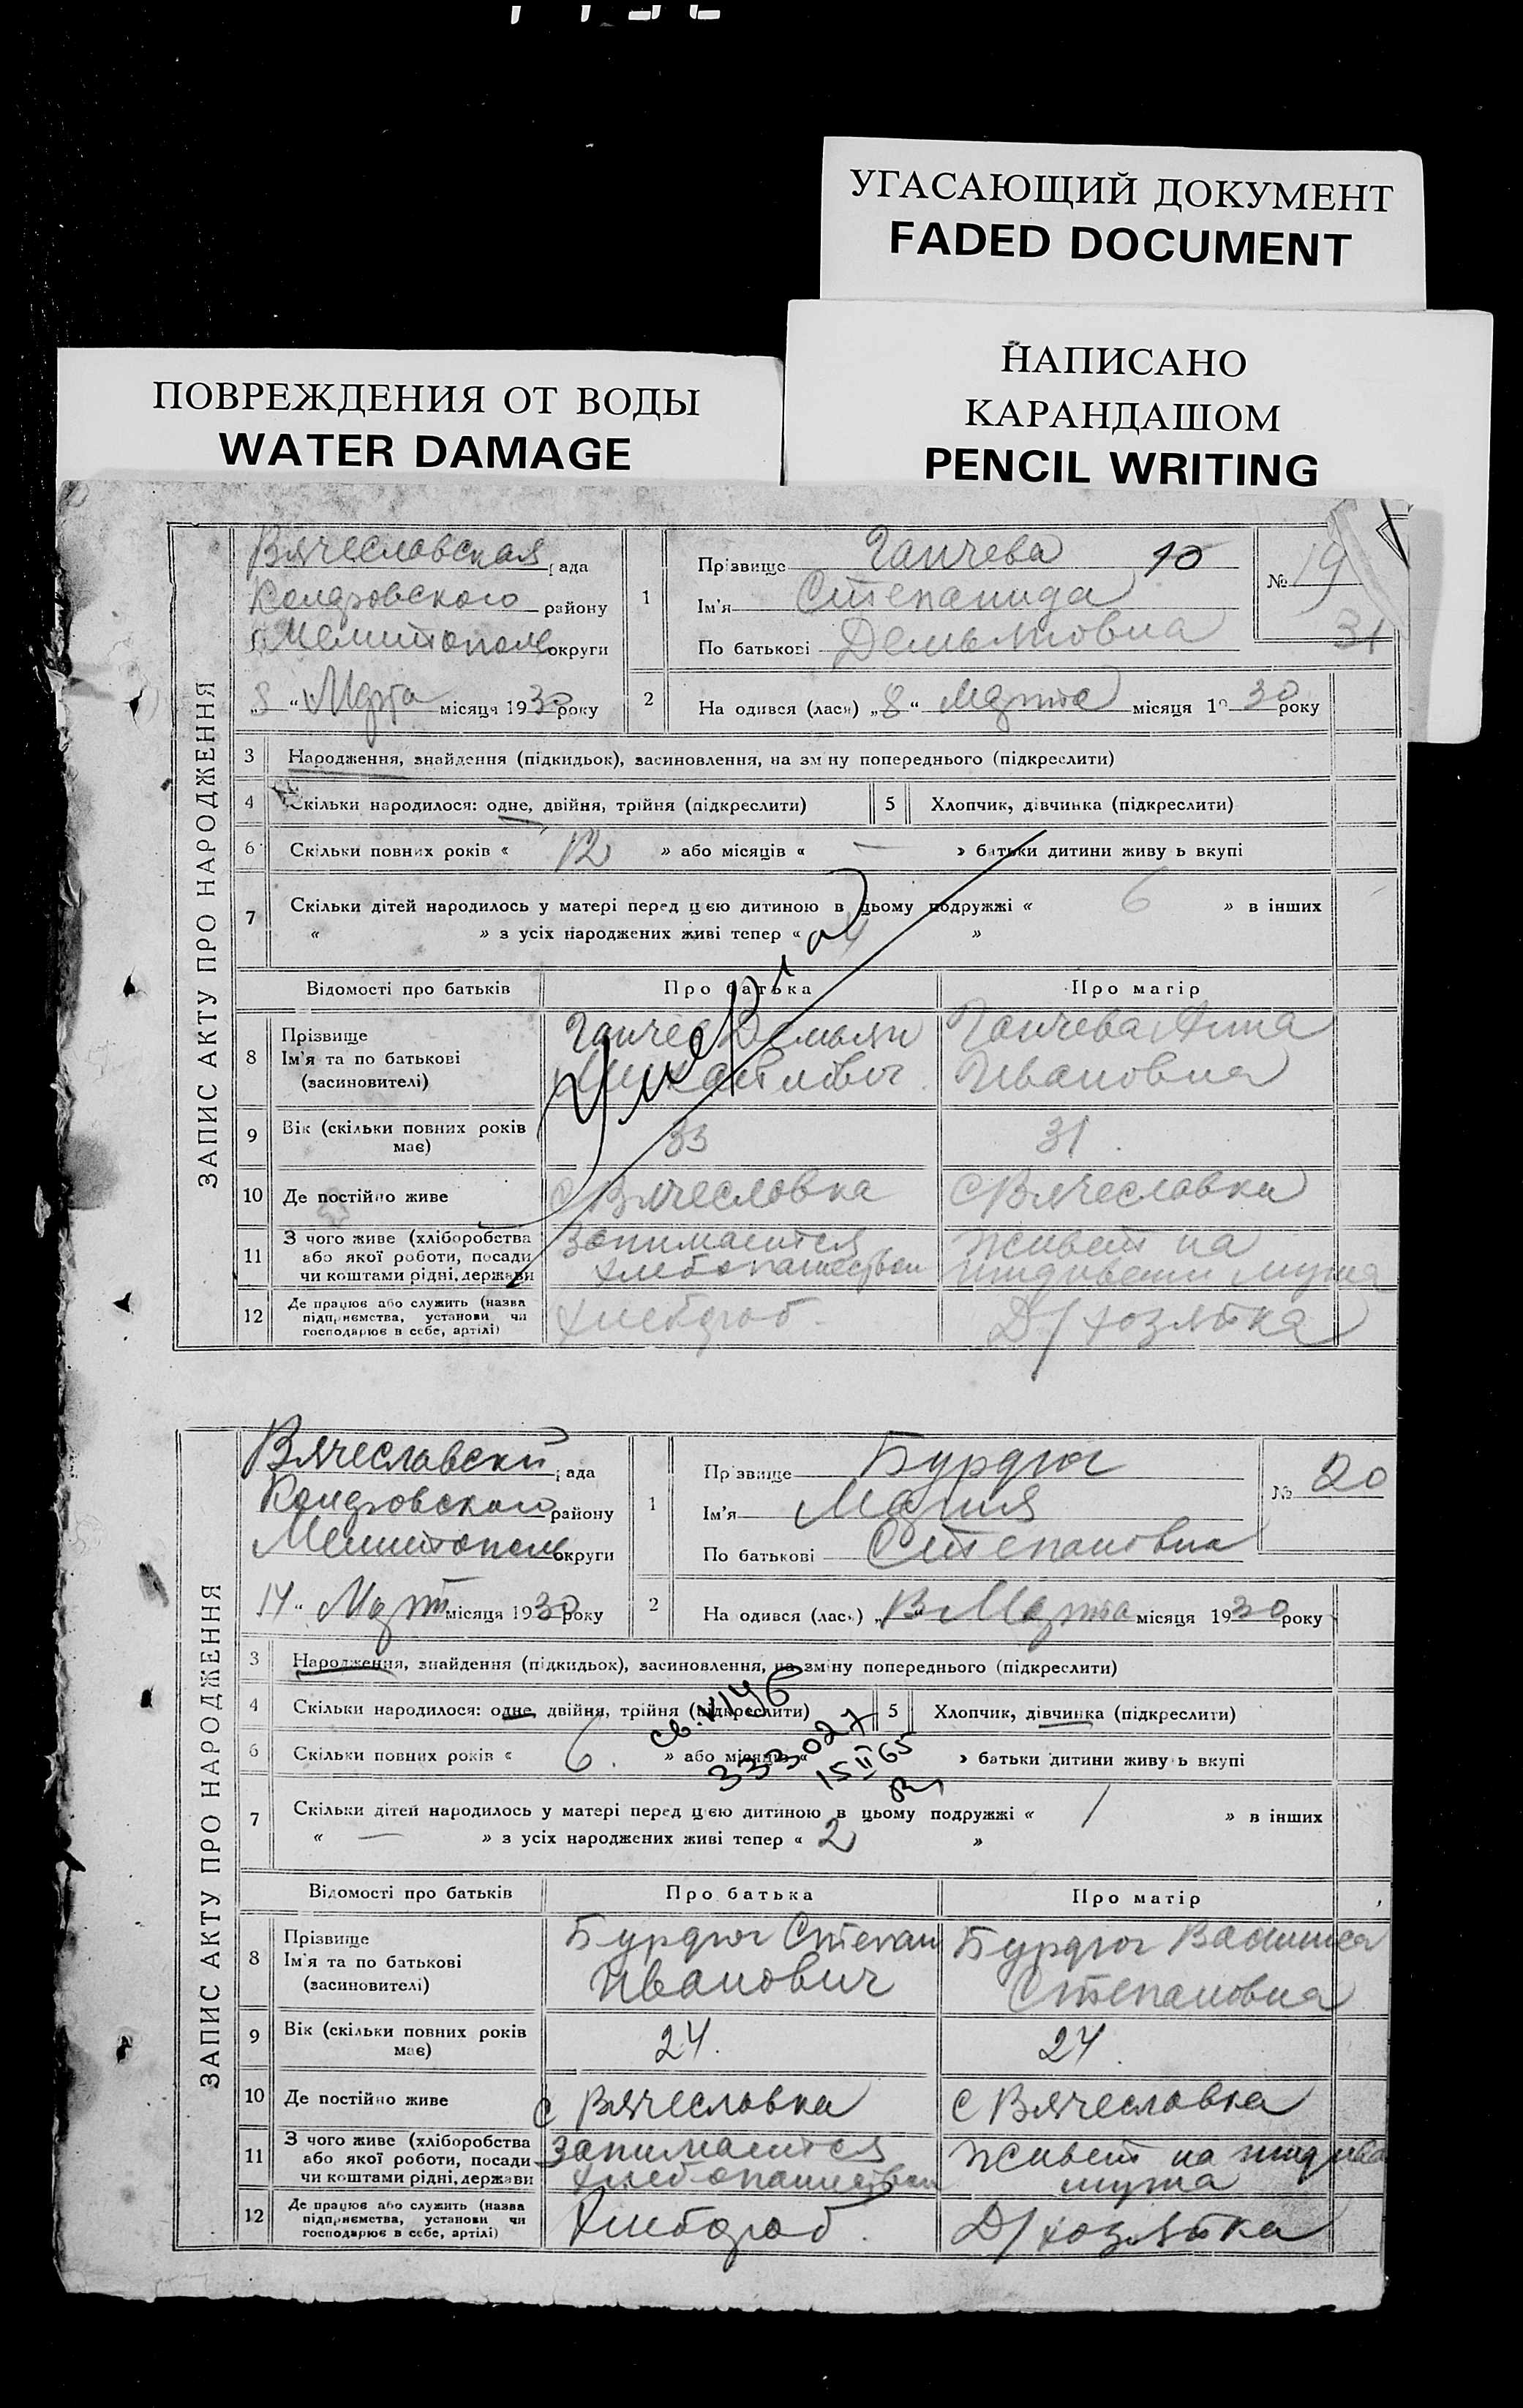 УГАСАЮЩИЙ ДОКУМЕНТ
FADED DOCUMENT
НАПИСАНО
КАРАНДАШОМ
PENCIL WRITING
ПОВРЕЖДЕНИЯ ОТ ВОДЫ
WATER DAMAGE
ЗАПИС АКТУ ПРО НАРОДЖЕННЯ
Вячеславская рада
району
Мелитополь округи
„8“ Марта місяця 1930 року
1
Прізвище Ганчева 10
Ім'я Степанида
По батькові Демьяновна
№ 19
31
2
На одився (лась) „8“ Марта місяця 1930 року
3 Народження, знайдення (підкидьок), засиновлення, на зміну попереднього (підкреслити)
4 Скільки народилося: одне, двійня, трійня (підкреслити)
5 Хлопчик, дівчинка (підкреслити)
6 Скільки повних років « 12 » або місяців « — » батьки дитини живуть вкупі
7 Скільки дітей народилось у матері перед цією дитиною в цьому подружжі « 6 » в інших
« » з усіх народжених живі тепер « 4 »
Умерла
Відомості про батьків Про батька Про матір
8 Прізвище
Ім'я та по батькові
(засиновителі)
Ганчев Демьян
Ганчева Анна
Ивановна
9 Вік (скільки повних років має) 33 31
10 Де постійно живе с Вячеславка с Вячеславка
11 З чого живе (хліборобства
або якої роботи, посади
чи коштами рідні, держави
Занимается
хлебопашеством
Живет на
иждивении мужа
12 Де працює або служить (назва
підприємства, установи чи
господарює в себе, артілі)
Хлебороб Д/хозяйка
ЗАПИС АКТУ ПРО НАРОДЖЕННЯ
Вячеславский рада
району
Мелитополь округи
14 „ Март місяця 1930 року
1
Прізвище Бурдюг
Ім'я Мария
По батькові Степановна
№ 20
2
На одився (лась) „ 13 Марта місяця 1930 року
3 Народження, знайдення (підкидьок), засиновлення, на зміну попереднього (підкреслити)
4 Скільки народилося: одне, двійня, трійня (підкреслити)
5 Хлопчик, дівчинка (підкреслити)
6 Скільки повних років « 6. » або місяців « » батьки дитини живуть вкупі
333027
15 II 65
7 Скільки дітей народилось у матері перед цією дитиною в цьому подружжі « 1 » в інших
« — » з усіх народжених живі тепер « 2 »
Відомості про батьків Про батька Про матір
8 Прізвище
Ім'я та по батькові
(засиновителі)
Бурдюг Степан
Иванович
Бурдюг Василиса
Степановна
9 Вік (скільки повних років має) 24. 24.
10 Де постійно живе с Вячеславка с Вячеславка
11 З чого живе (хліборобства
або якої роботи, посади
чи коштами рідні, держави
Занимается
хлебопашеством
Живет на иждиве
мужа
12 Де працює або служить (назва
підприємства, установи чи
господарює в себе, артілі)
Хлебороб. Д/хозяйка